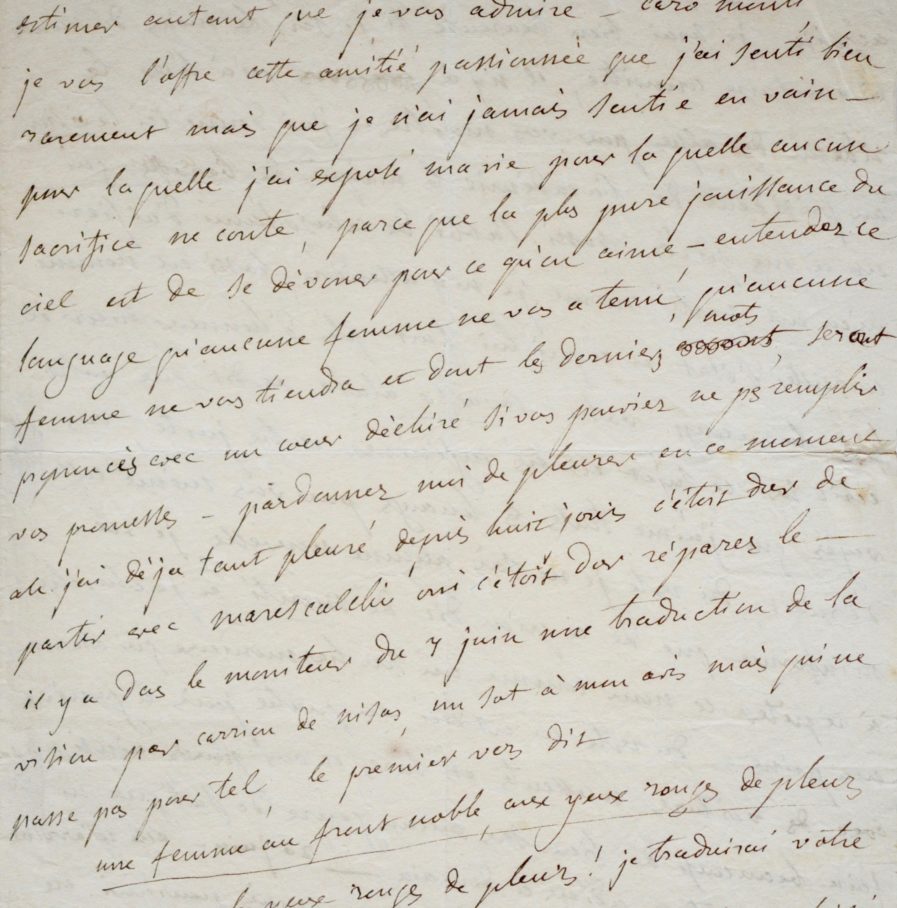 estimer autant que je vous admire – caro monti
je vous l'offre cette amitié passionnée que j'ai senti bien
rarement mais que je n'ai jamais sentie en vain –
pour laquelle j'ai exposé ma vie pour laquelle aucun
sacrifice ne coute, parce que la plus pure jouissance du
ciel est de se dévouer pour ce qu'on aime – entendez ce
language qu'aucune femme ne vous a tenu, qu'aucune
femme ne vous tiendra et dont les derniers mots seront
prononcés avec un coeur déchiré si vous pouviez ne pas remplir
vos promesses – pardonnez moi de pleurer en ce moment
ah j'ai déja tant pleuré depuis huit jours c'étoit dur de
partir avec marescalchi oui c'étoit dur réparez le –
il y a dans le moniteur du 7 juin une traduction de la
vision par carrion de nisas, un sot à mon avis mais qui ne
passe pas pour tel, le premier vers dit
une femme au front noble, aux yeux rouges de pleurs
yeux rouges de pleurs! je traduirai votre